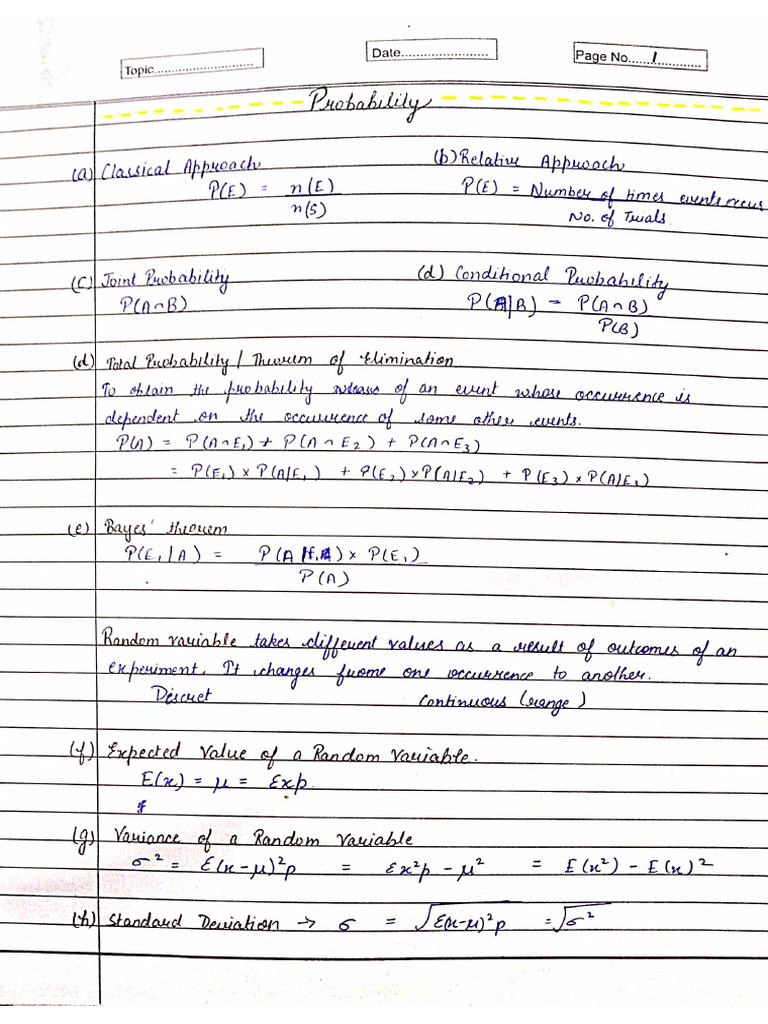 Topic............................ Date........................ Page No......1............
Probability
(a) Classical Approach (b) Relative Approach
P(E) = n(E) P(E) = Number of times events occurs
n(S) No. of Trials
(c) Joint Probability (d) Conditional Probability
P(A∩B) P(A|B) = P(A∩B)
P(B)
(d) Total Probability / Theorem of Elimination
To obtain the probability of an event whose occurrence is
dependent on the occurrence of some other events.
P(A) = P(A∩E₁) + P(A∩E₂) + P(A∩E₃)
= P(E₁) × P(A|E₁) + P(E₂) × P(A|E₂) + P(E₃) × P(A|E₁)
(e) Bayes' theorem
P(E₁|A) = P(A ) × P(E₁)
P(A)
Random variable takes different values as a result of outcomes of an
experiment. It changes frome one occurrence to another.
Discret Continuous (range)
(f) Expected Value of a Random Variable.
E(x) = μ = Σxp.
(g) Variance of a Random Variable
σ² = Σ(x-μ)²p = Σx²p - μ² = E(x²) - E(x)²
(h) Standard Deviation → σ = √Σ(x-μ)²p = √σ²